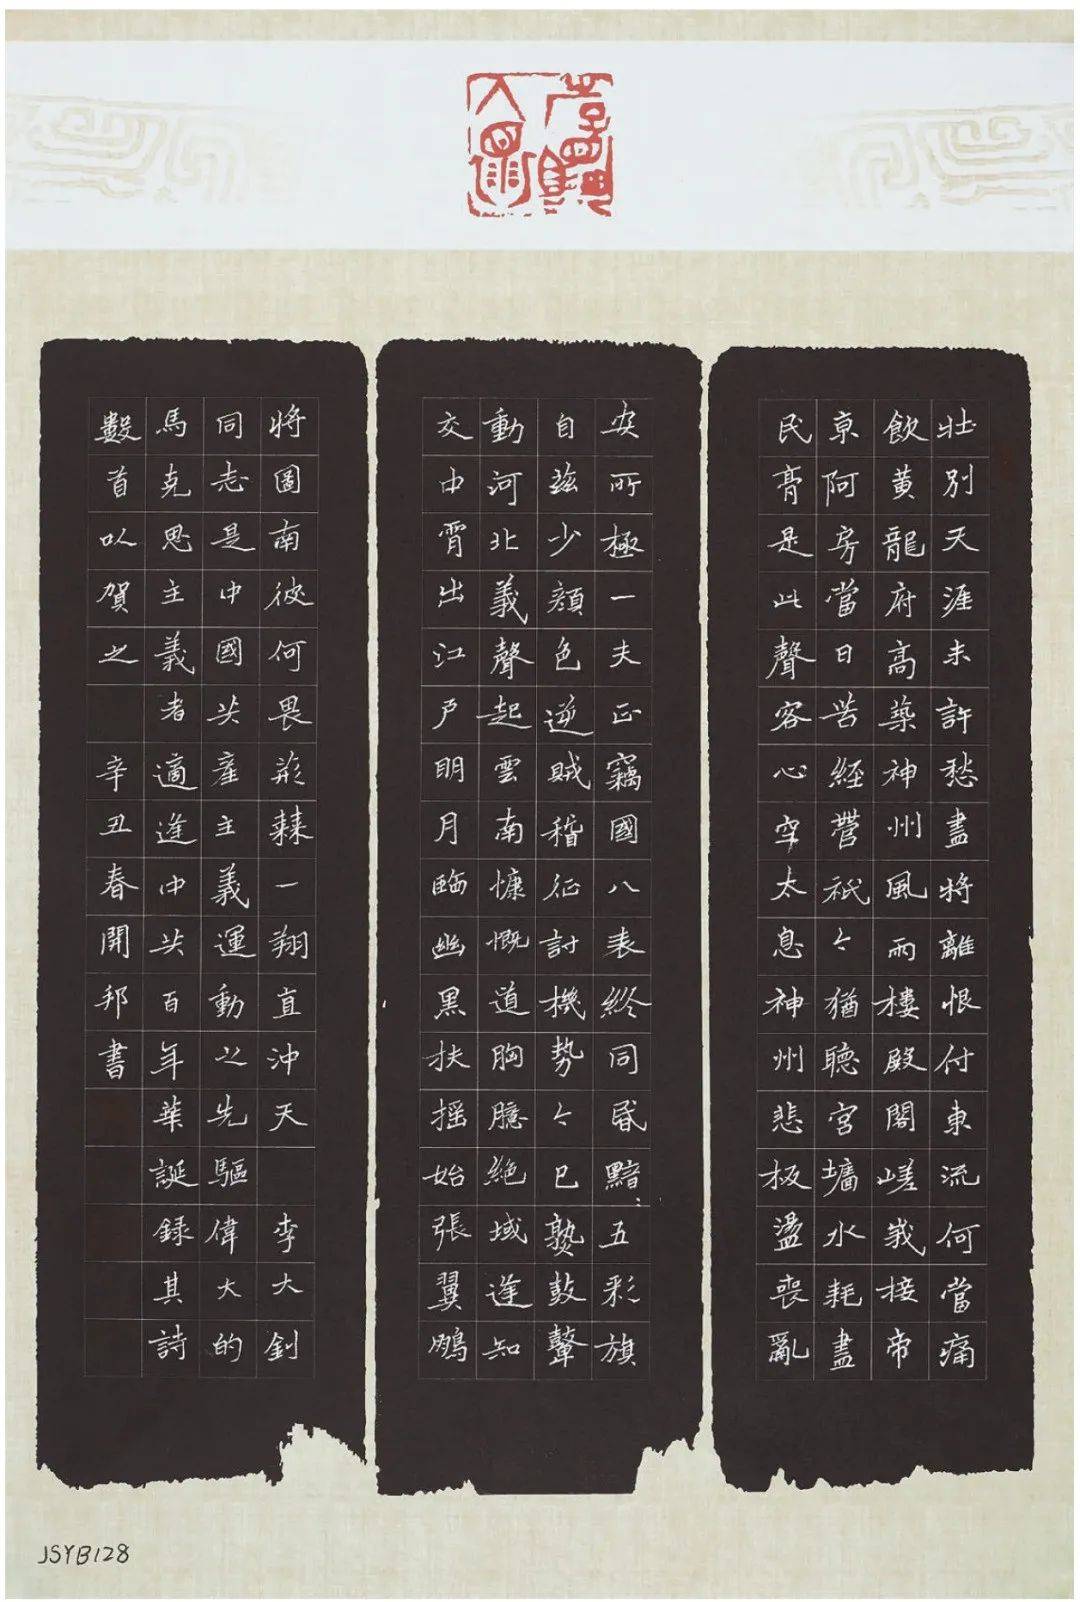 壯別天涯未許愁盡將離恨付東流何當痛
飲黃龍府高築神州風雨樓殿閣嵯峨接帝
京阿房當日苦經營祇今猶聽宮墻水耗盡
民膏是此聲客心空太息神州悲板盪喪亂
安所極一夫正竊國八表終同昏黯：五彩旗
自茲少顏色逆賊稽征討機勢今已熟鼓鼙
動河北義聲起雲南慷慨道胸臆絕域逢知
交中宵出江戶明月臨幽黑扶搖始張翼鵬
將圖南彼何畏荊棘一翔直沖天 李大釗
同志是中國共產主義運動之先驅偉大的
馬克思主義者適逢中共百年華誕錄其詩
數首以賀之 辛丑春開邦書
JSYB128